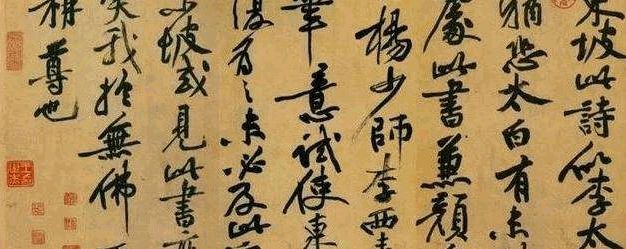 東坡此詩似李太
猶恐太白有未
處此書兼顏
楊少師李西
筆意試使東
復為之未必及此
東坡或見此書
笑我於無佛
稱尊也